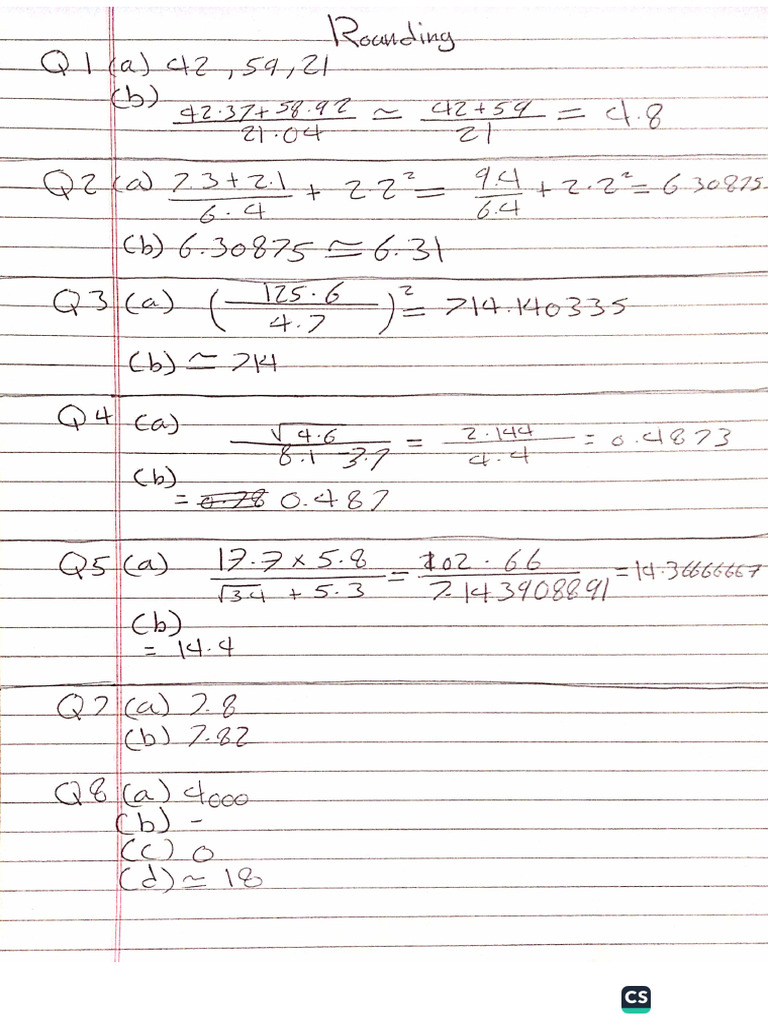 Rounding
Q1 (a) 42, 59, 21
(b) (42.37+58.92)/21.04 ≃ (42+59)/21 = 4.8
Q2 (a) (7.3+2.1)/6.4 + 2.2² = 9.4/6.4 + 2.2² = 6.30875
(b) 6.30875 ≃ 6.31
Q3 (a) (125.6/4.7)² = 714.140335
(b) ≃ 714
Q4 (a) √4.6/(8.1-3.7) = 2.144/4.4 = 0.4873
(b)
= 0.487
Q5 (a) (17.7×5.8)/(√3.4 + 5.3) = 102.66/7.143908891 = 14.36666667
(b)
= 14.4
Q7 (a) 7.8
(b) 7.82
Q8 (a) 4000
(b) -
(c) 0
(d) ≃ 18
CS